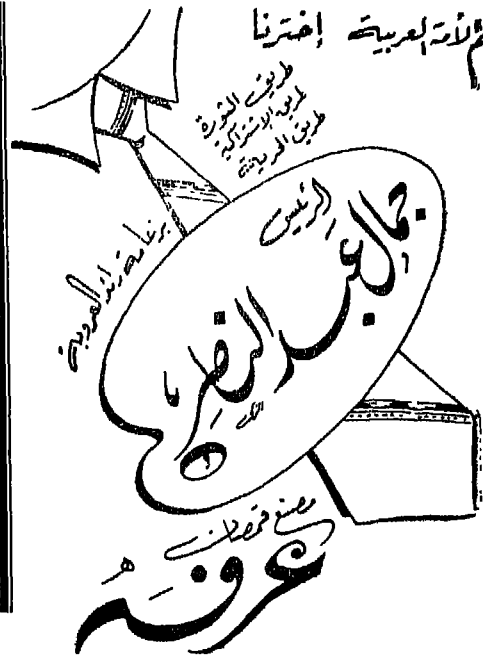 الأمة العربية إخترنا
طريق الثورة
طريق الإشتراكية
طريق الحرية
برعامة رائد العروبة
الرئيس
جمال عبد الناصر
مصنع قمصان
عرفه